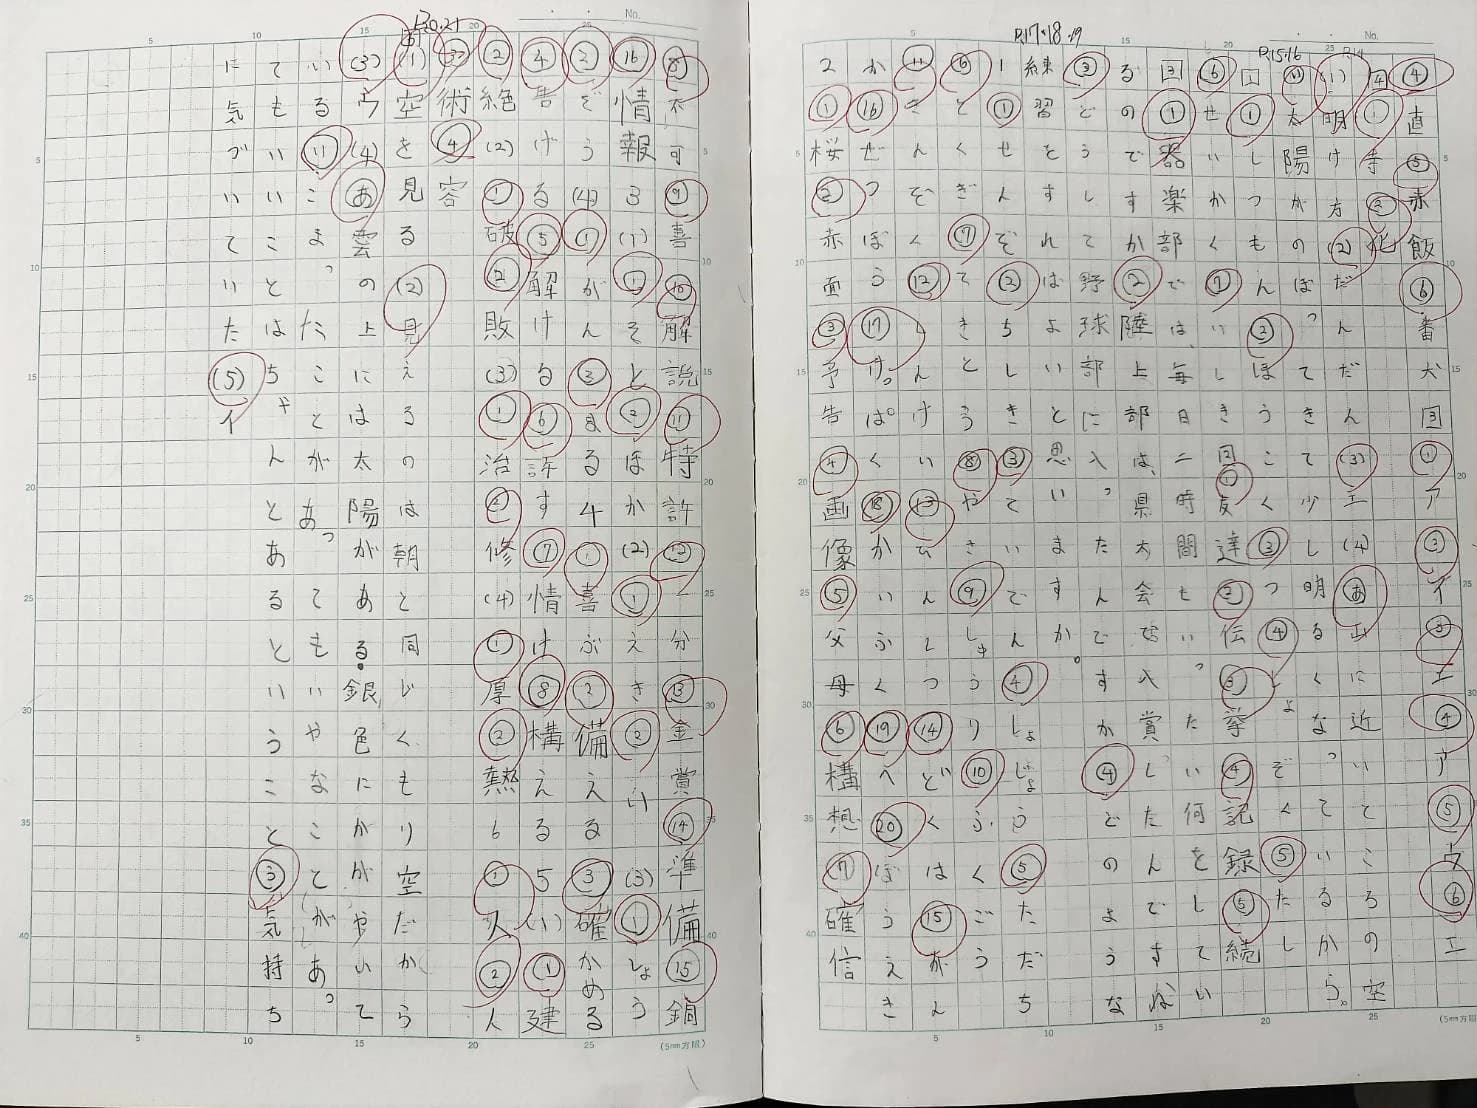 P.17・18・19
P.15・16
P.14
④直⑤赤飯⑥番犬3①ア②イ③エ④ア⑤ウ⑥エ
4①寺②化
(1)明け方(2)だんだん(3)エ(4)あ山に近いところの空
太陽がのぼってきて少し明るくなっているから。
1①しつもん②ほうこく③つ④しょぞく⑤たし
⑥せいかく⑦いしき2①友達②伝③挙④記録⑤続
3①器楽部では、毎日二時間もいったい何をしてい
るのですか②陸上部は、県大会で入賞したんですね
③どうして野球部に入ったんですか④どのような
練習をすれはよいと思いますか。
1①せんぞ②ちしき③ていでん④しょじょう⑤ただち
⑥とくぎ⑦てきとう⑧やさ⑨しゅうり⑩ふくごう
⑪きんぞく⑫しんけい⑬ひんしつ⑭どくは⑮がん
か⑯ぜつぼう⑰けっぱく⑱かいふく⑲へ⑳ぼうえき
2①桜②赤面③予告④画像⑤父母⑥構想⑦確信
P.20.21
⑧太可⑨喜⑩解説⑪特許⑫二分⑬金賞⑭準備⑮銅
⑯情報3(1)①そと②ほか(2)①えき②い(3)①しょう
②ぞう(4)①がん③まる4①喜ぶ②備える③確かめる
④告げる⑤解ける⑥許す⑦情け⑧構える5(1)①建
②絶(2)①破②敗(3)①治②修(4)①厚②熱6①人②人
③術④容
(1)空を見る(2)見えるのは朝と同じくもり空だから
(3)ウ(4)あ雲の上には太陽がある。銀色にかがやいて
いるいこまったことがあってもいやなことがあっ
てもいいことはちゃんとあるということ③気持ち
に気づいていた(5)イ